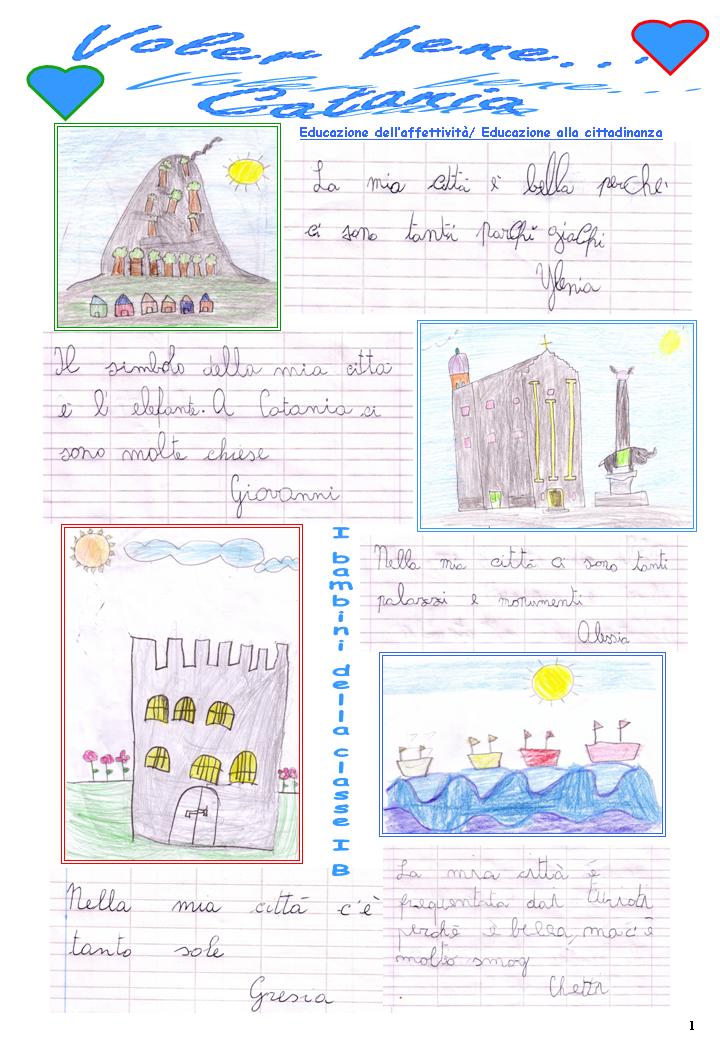 Voler bene...
Catania
Educazione dell'affettività/ Educazione alla cittadinanza
La mia città è bella perché
ci sono tanti parchi giochi
Ylenia
Il simbolo della mia citta
è l'elefante. A Catania ci
sono molte chiese
Giovanni
I bambini della classe I B
Nella mia città ci sono tanti
palazzi e monumenti
Alessia
Nella mia città c'è
tanto sole
Gresia
La mia città è
frequentata dai turisti
perché è bella, ma c'è
molto smog
1